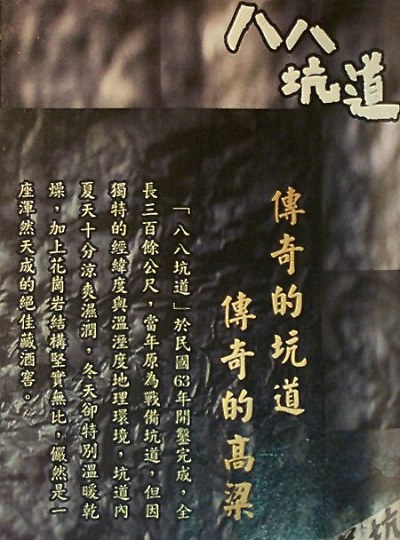 八八
坑道
傳奇的坑道
傳奇的高粱
「八八坑道」於民國63年開鑿完成,全
長三百餘公尺,當年原為戰備坑道,但因
獨特的經緯度與溫溼度地理環境,坑道內
夏天十分涼爽濕潤,冬天卻特別溫暖乾
燥,加上花崗岩結構堅實無比,儼然是一
座渾然天成的絕佳藏酒窖。
坑